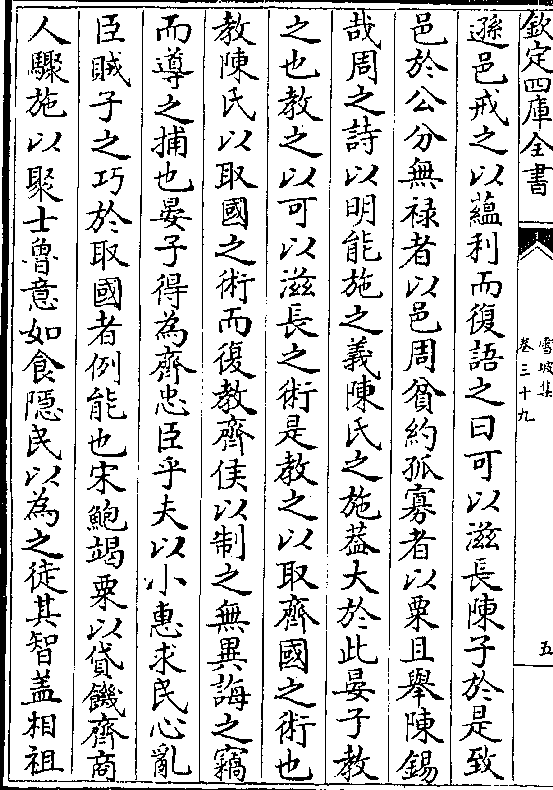 欽定四庫全書
雪坡集
卷三十九
五
遜邑戒之以蘊利而復語之曰可以滋長陳子於是致
邑於公分無禄者以邑周貧約孤寡者以粟且舉陳錫
哉周之詩以明能施之義陳氏之施葢大於此晏子教
之也教之以可以滋長之術是教之以取齊國之術也
教陳氏以取國之術而復教齊侯以制之無異誨之竊
而導之捕也晏子得為齊忠臣乎夫以小惠求民心亂
臣賊子之巧於取國者例能也宋鮑竭粟以貸饑齊商
人驟施以聚士魯意如食隱民以為之徒其智盖相祖